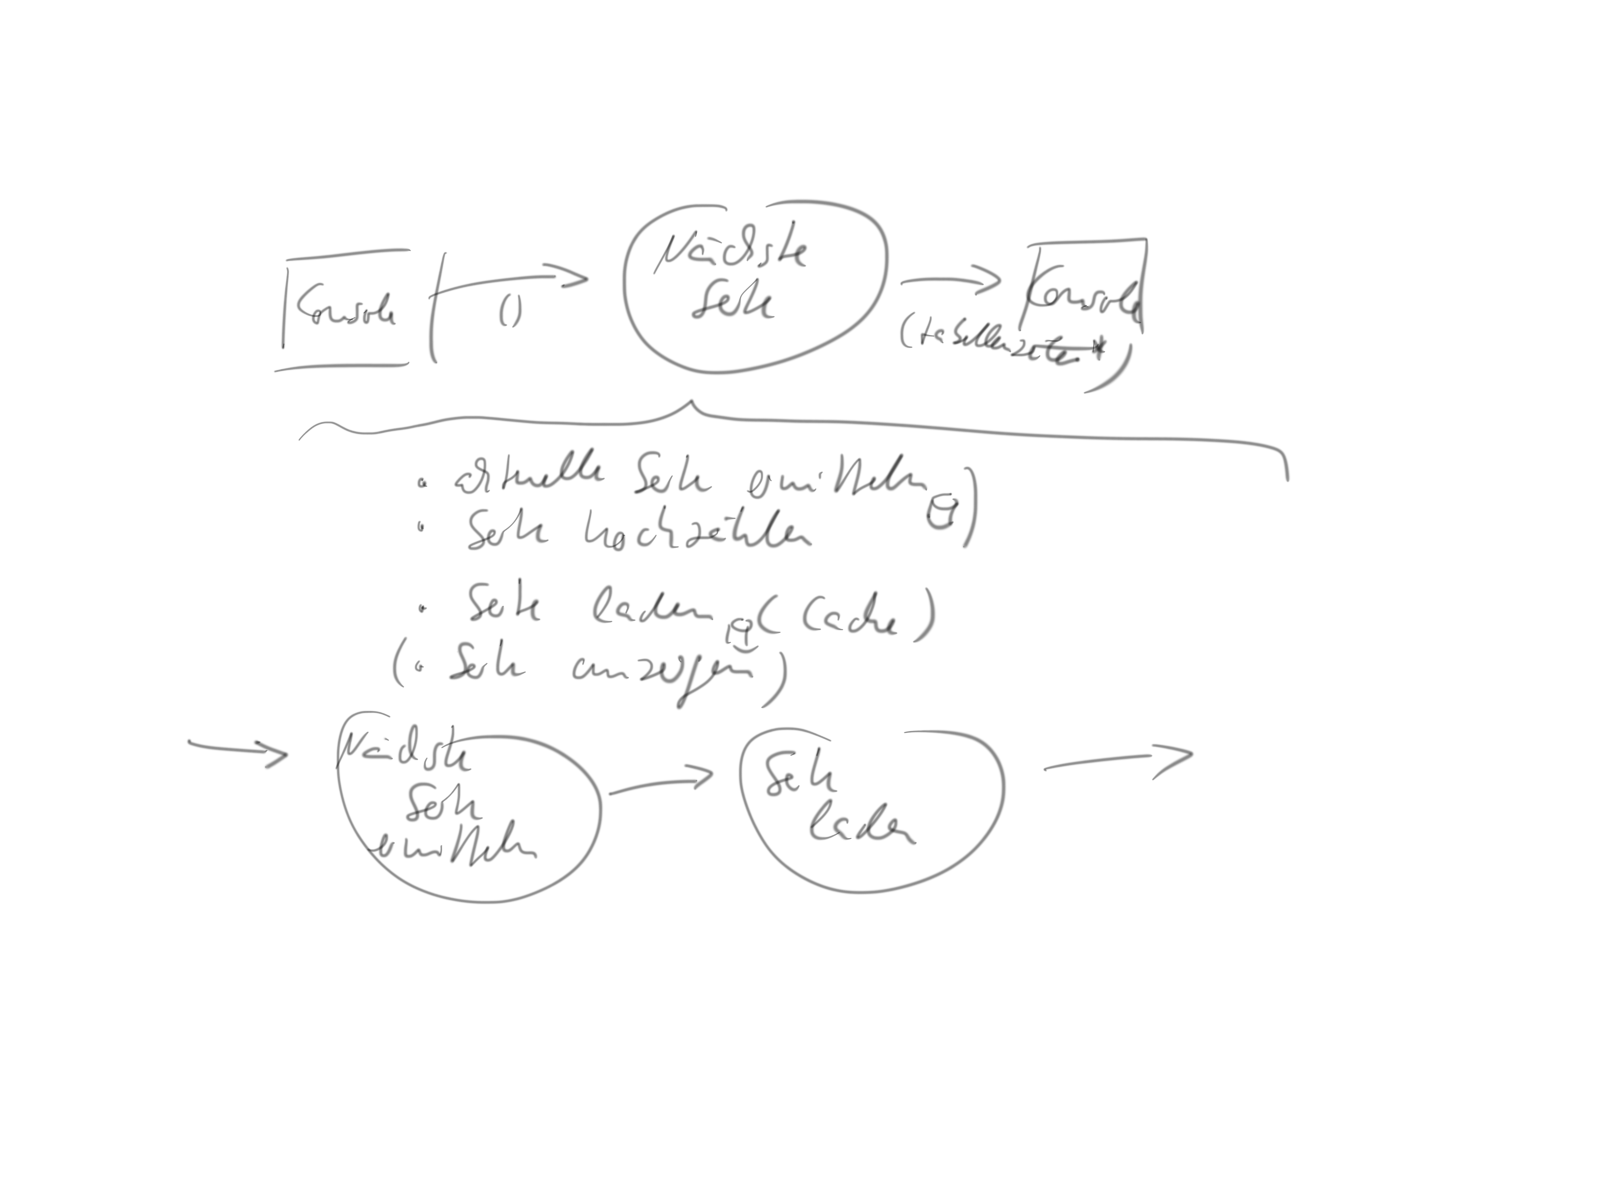 Console
()
Nächste
Seite
Console
(tabellenzeilen*)
• aktuelle Seite ermitteln
• Seite hochzählen
• Seite laden (Cache)
(• Seite anzeigen)
Nächste
Seite
ermitteln
Seite
laden